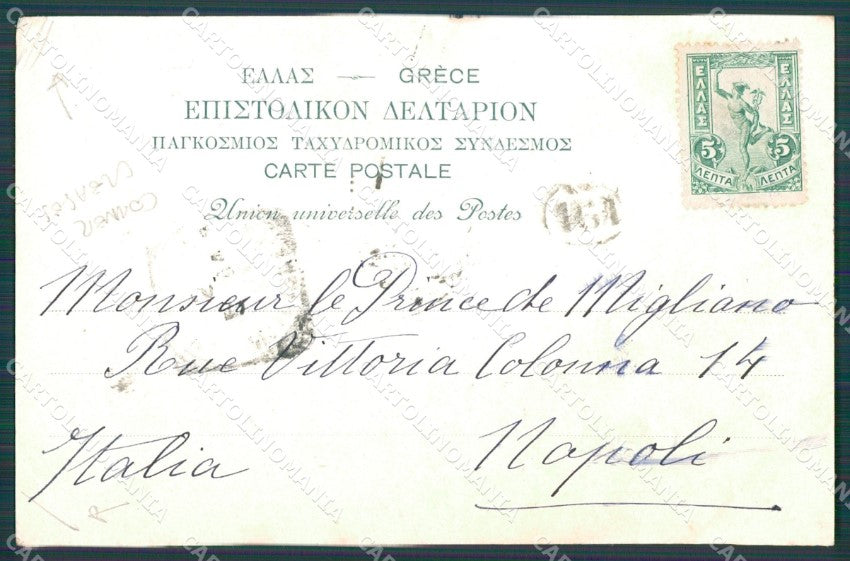 ΕΛΛΑΣ — GRÈCE
ΕΠΙΣΤΟΛΙΚΟΝ ΔΕΛΤΑΡΙΟΝ
ΠΑΓΚΟΣΜΙΟΣ ΤΑΧΥΔΡΟΜΙΚΟΣ ΣΥΝΔΕΣΜΟΣ
CARTE POSTALE
Union universelle des Postes
ΕΛΛΑΣ
ΕΛΛΑΣ
5 5
ΛΕΠΤΑ ΛΕΠΤΑ
161
Monsieur le Prince de Migliano
Rue Vittoria Colonna 14
Napoli
Italia
CARTOLINOMANIA